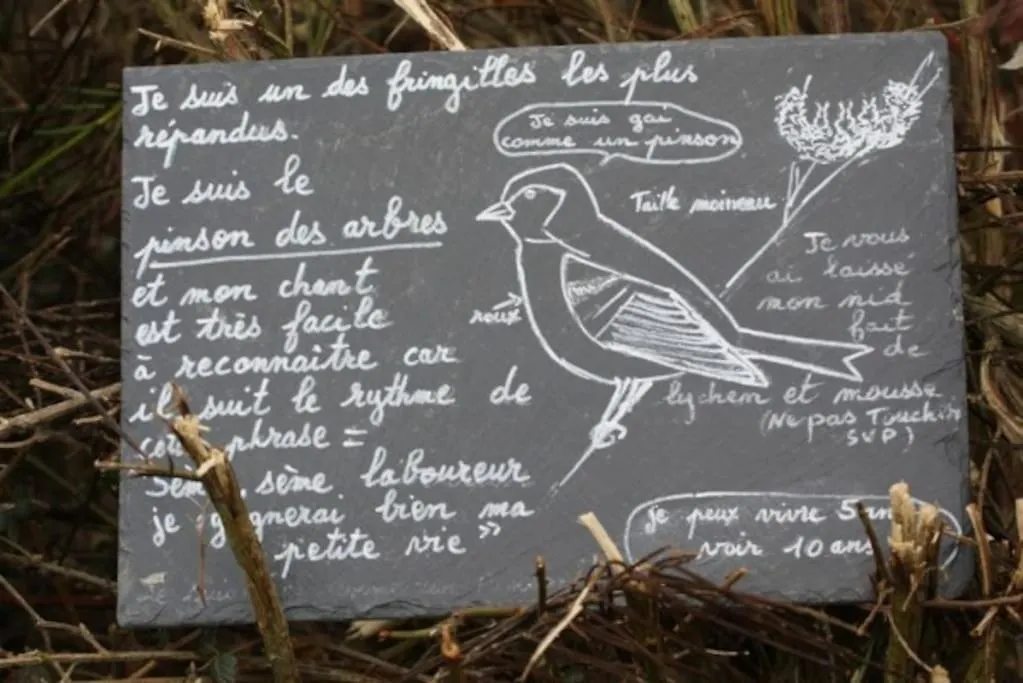 Je suis un des fringilles les plus
répandus.
Je suis le
pinson des arbres
et mon chant
est très facile
à reconnaitre car
il suit le rythme de
phrase =
sème laboureur
je gagnerai bien ma
petite vie »
Je suis gai
comme un pinson
Taille moineau
roux
Je vous
ai laissé
mon nid
fait
de
lychem et mousse
(Ne pas Toucher
SVP)
je peux vivre 5 ans
voir 10 ans
Je suis